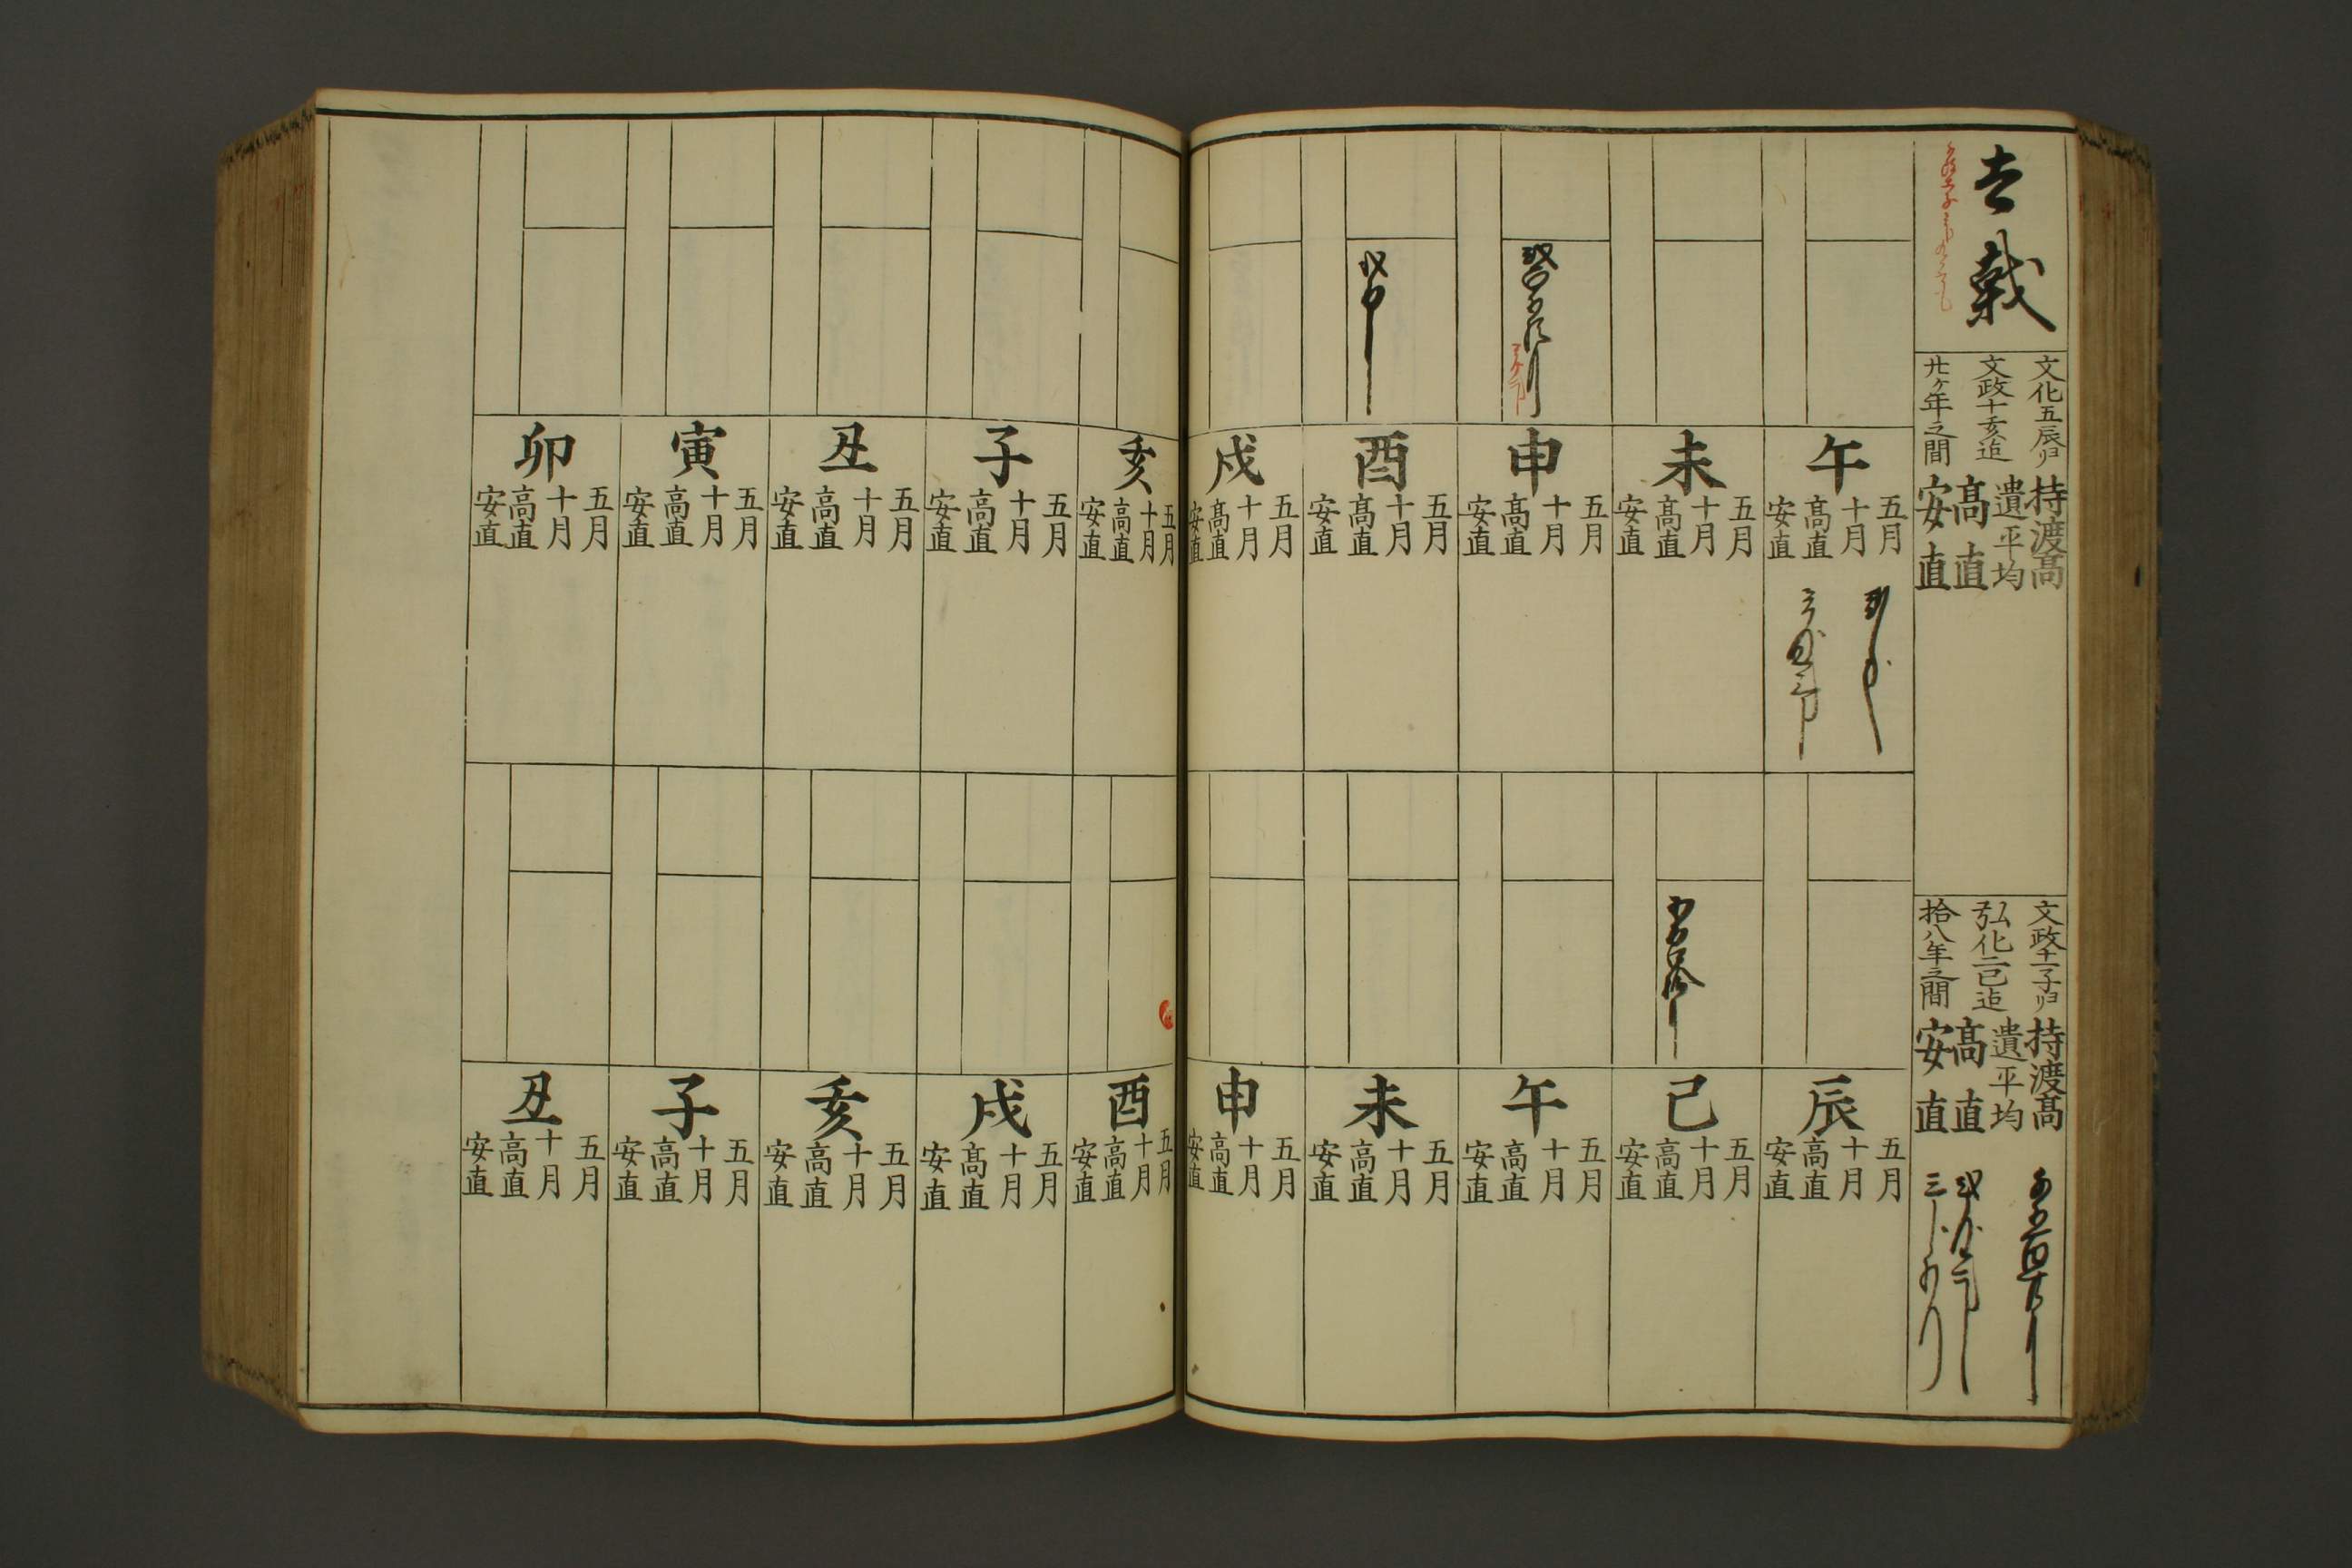 文化五辰ゟ
文政十亥迠
廿ケ年之間
持渡髙
遺平均
髙直
安直
文政十一子ゟ
弘化二巳迠
拾八年之間
持渡髙
遺平均
髙直
安直
午
五月
十月
髙直
安直
未
五月
十月
髙直
安直
申
五月
十月
髙直
安直
酉
五月
十月
髙直
安直
戌
五月
十月
髙直
安直
辰
五月
十月
髙直
安直
巳
五月
十月
髙直
安直
午
五月
十月
髙直
安直
未
五月
十月
髙直
安直
申
五月
十月
髙直
安直
亥
五月
十月
髙直
安直
子
五月
十月
髙直
安直
丑
五月
十月
髙直
安直
寅
五月
十月
髙直
安直
卯
五月
十月
髙直
安直
酉
五月
十月
髙直
安直
戌
五月
十月
髙直
安直
亥
五月
十月
髙直
安直
子
五月
十月
髙直
安直
丑
五月
十月
髙直
安直